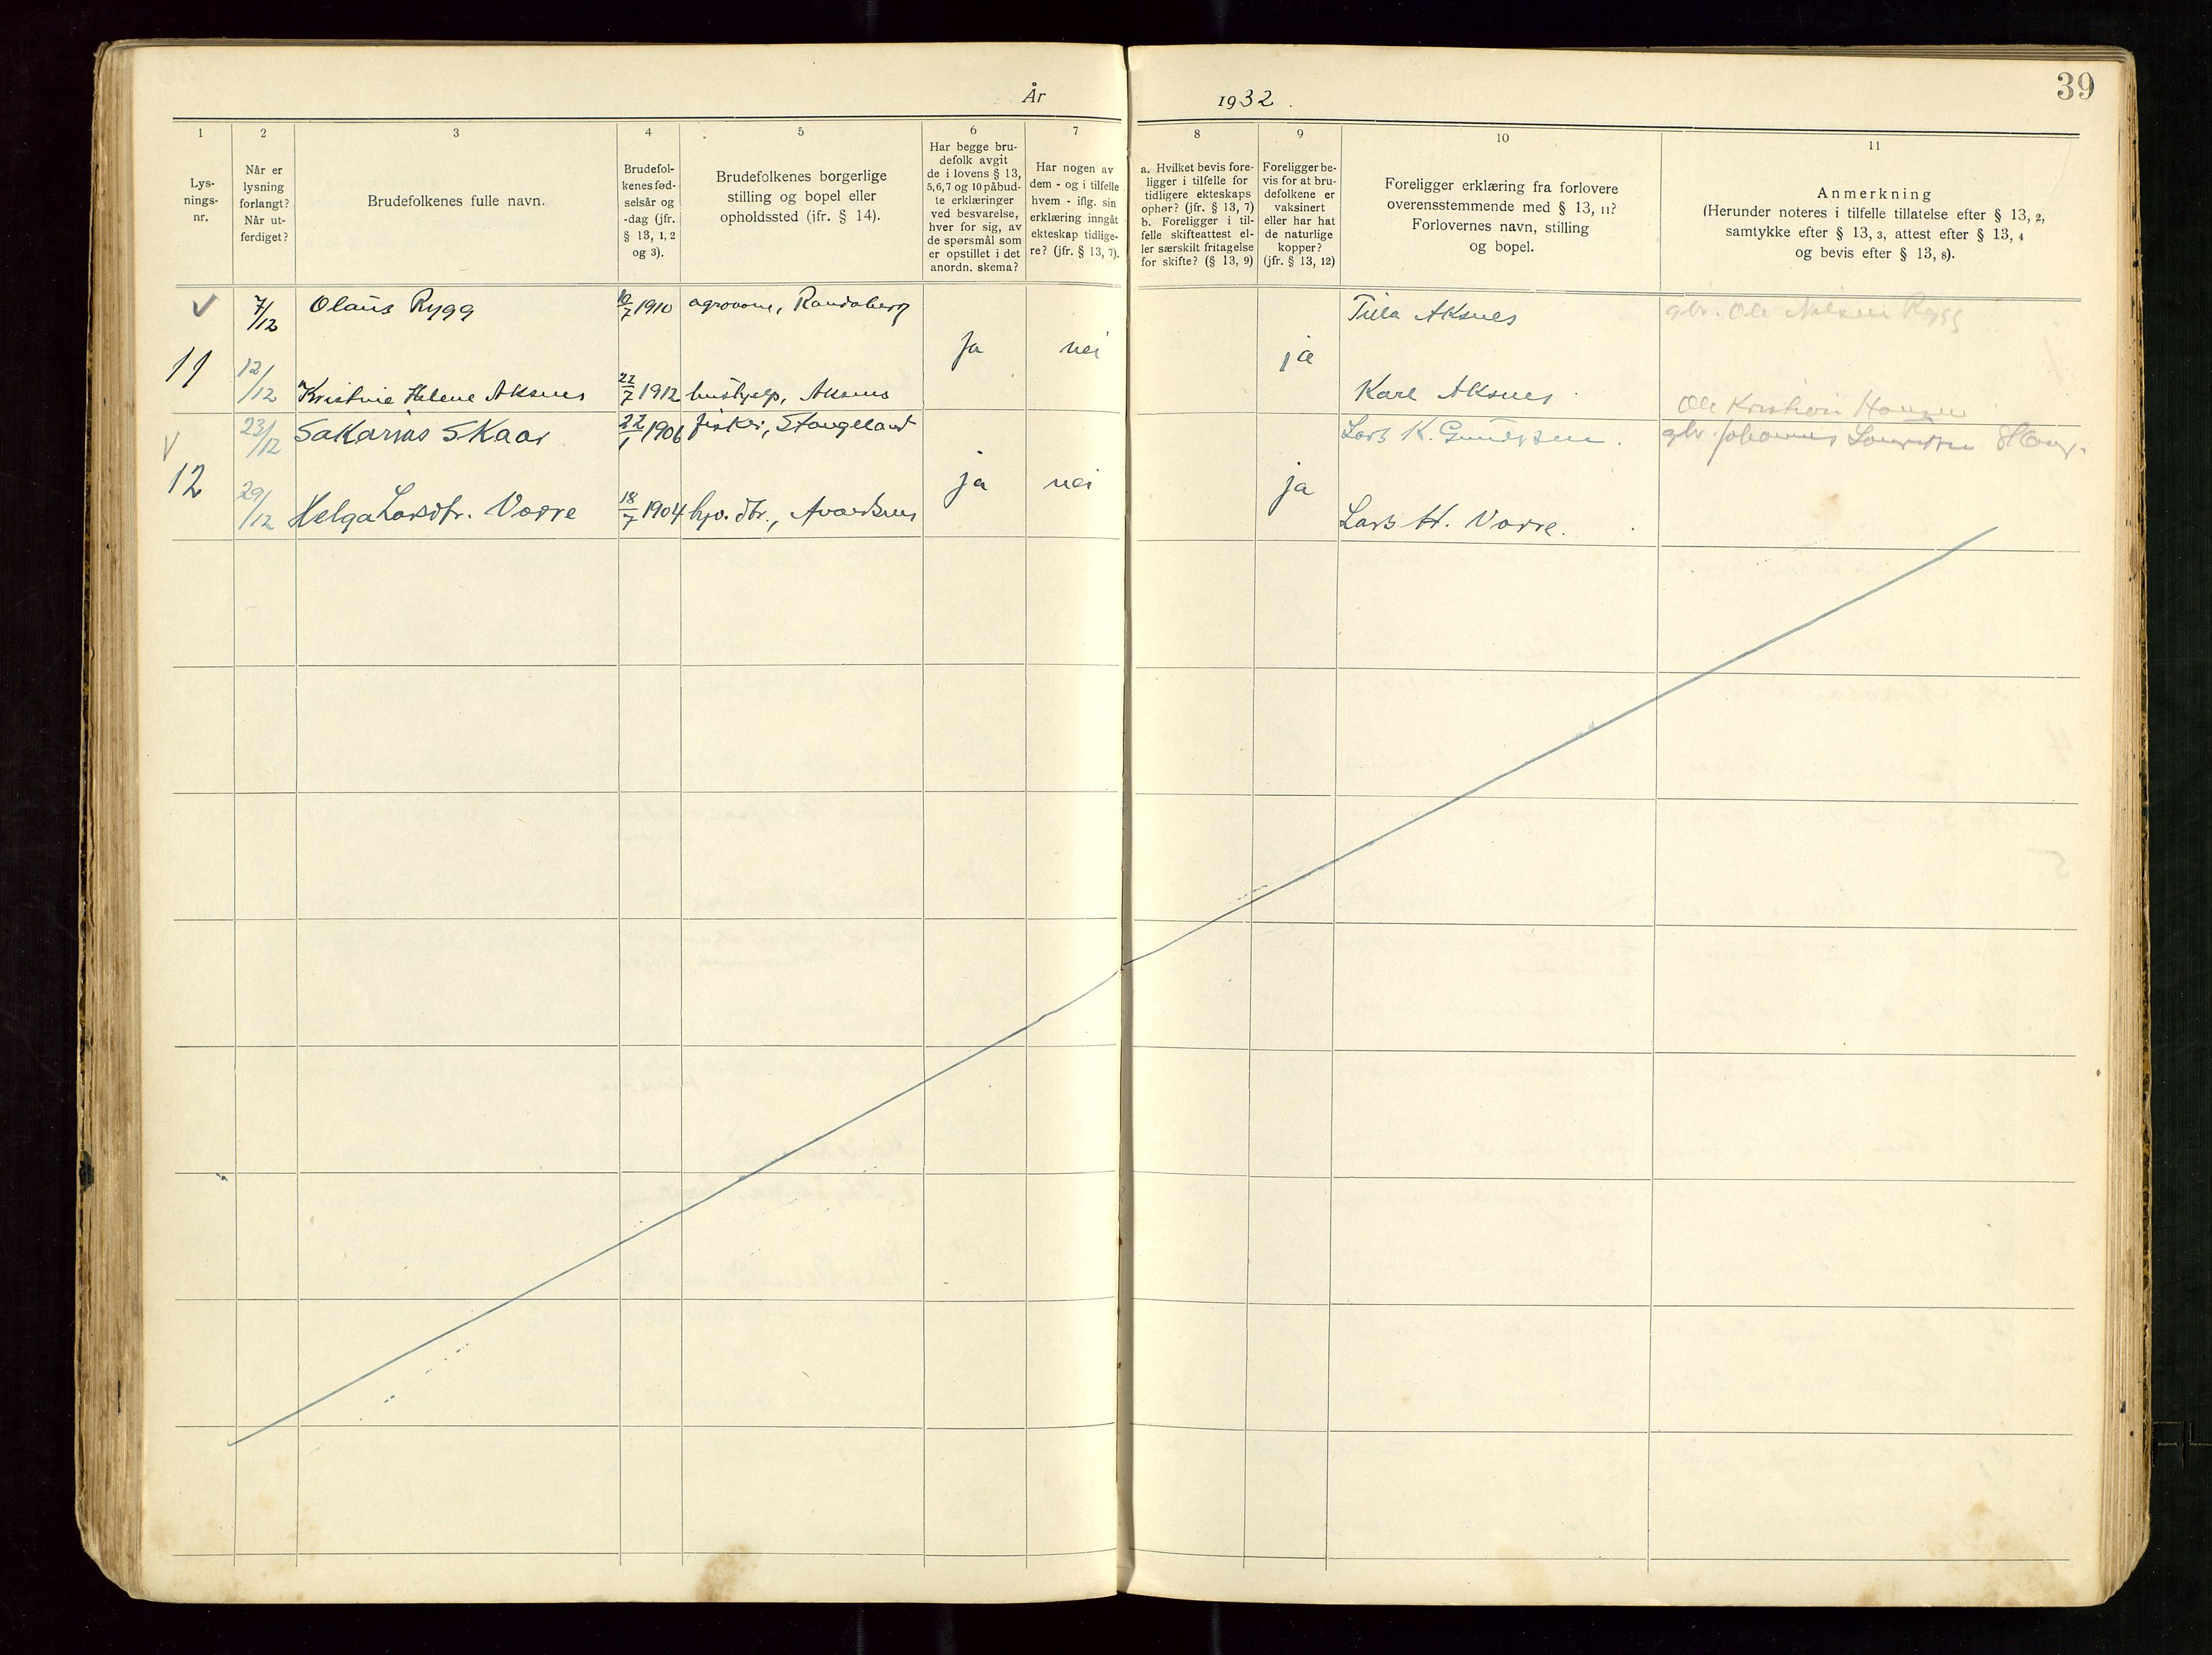 39
År 1932.
1
Lys-
nings-
nr.
2
Når er
lysning
forlangt?
Når ut-
ferdiget?
3
Brudefolkenes fulle navn.
4
Brudefol-
kenes fød-
selsår og
-dag (jfr.
§ 13, 1, 2
og 3).
5
Brudefolkenes borgerlige
stilling og bopel eller
opholdssted (jfr. § 14).
6
Har begge bru-
defolk avgit
de i lovens § 13,
5,6,7 og 10 påbud-
te erklæringer
ved besvarelse,
hver for sig, av
de spørsmål som
er opstillet i det
anordn. skema?
7
Har nogen av
dem - og i tilfelle
hvem - iflg. sin
erklæring inngåt
ekteskap tidlige-
re? (jfr. § 13, 7).
8
a. Hvilket bevis fore-
ligger i tilfelle for
tidligere ekteskaps
ophør? (jfr. § 13, 7)
b. Foreligger i til-
felle skifteattest el-
ler særskilt fritagelse
for skifte? (§ 13, 9)
9
Foreligger be-
vis for at bru-
defolkene er
vaksinert
eller har hat
de naturlige
kopper?
(jfr. § 13, 12)
10
Foreligger erklæring fra forlovere
overensstemmende med § 13, 11?
Forlovernes navn, stilling
og bopel.
11
Anmerkning
(Herunder noteres i tilfelle tillatelse efter § 13, 2,
samtykke efter § 13, 3, attest efter § 13, 4
og bevis efter § 13, 8).
7/12 Olaus Rygg 10/7 1910 agronom, Randaberg Aksnes gbr. Ole Nilsen Rygg
11 Ja nei ja
12/12 Kristine Helene Aksnes 22/7 1912 hushjelp, Aksnes Karl Aksnes.
Ole Kristian Hansen
23/12 Sakarias Skaar 22/1 1906 fisker, Stangeland Lars K. Gundersen. gbr. Johannes
12 ja nei ja
29/12 Helga Larsdtr. Vorre 18/7 1904 dtr., Lars H. Vorre.